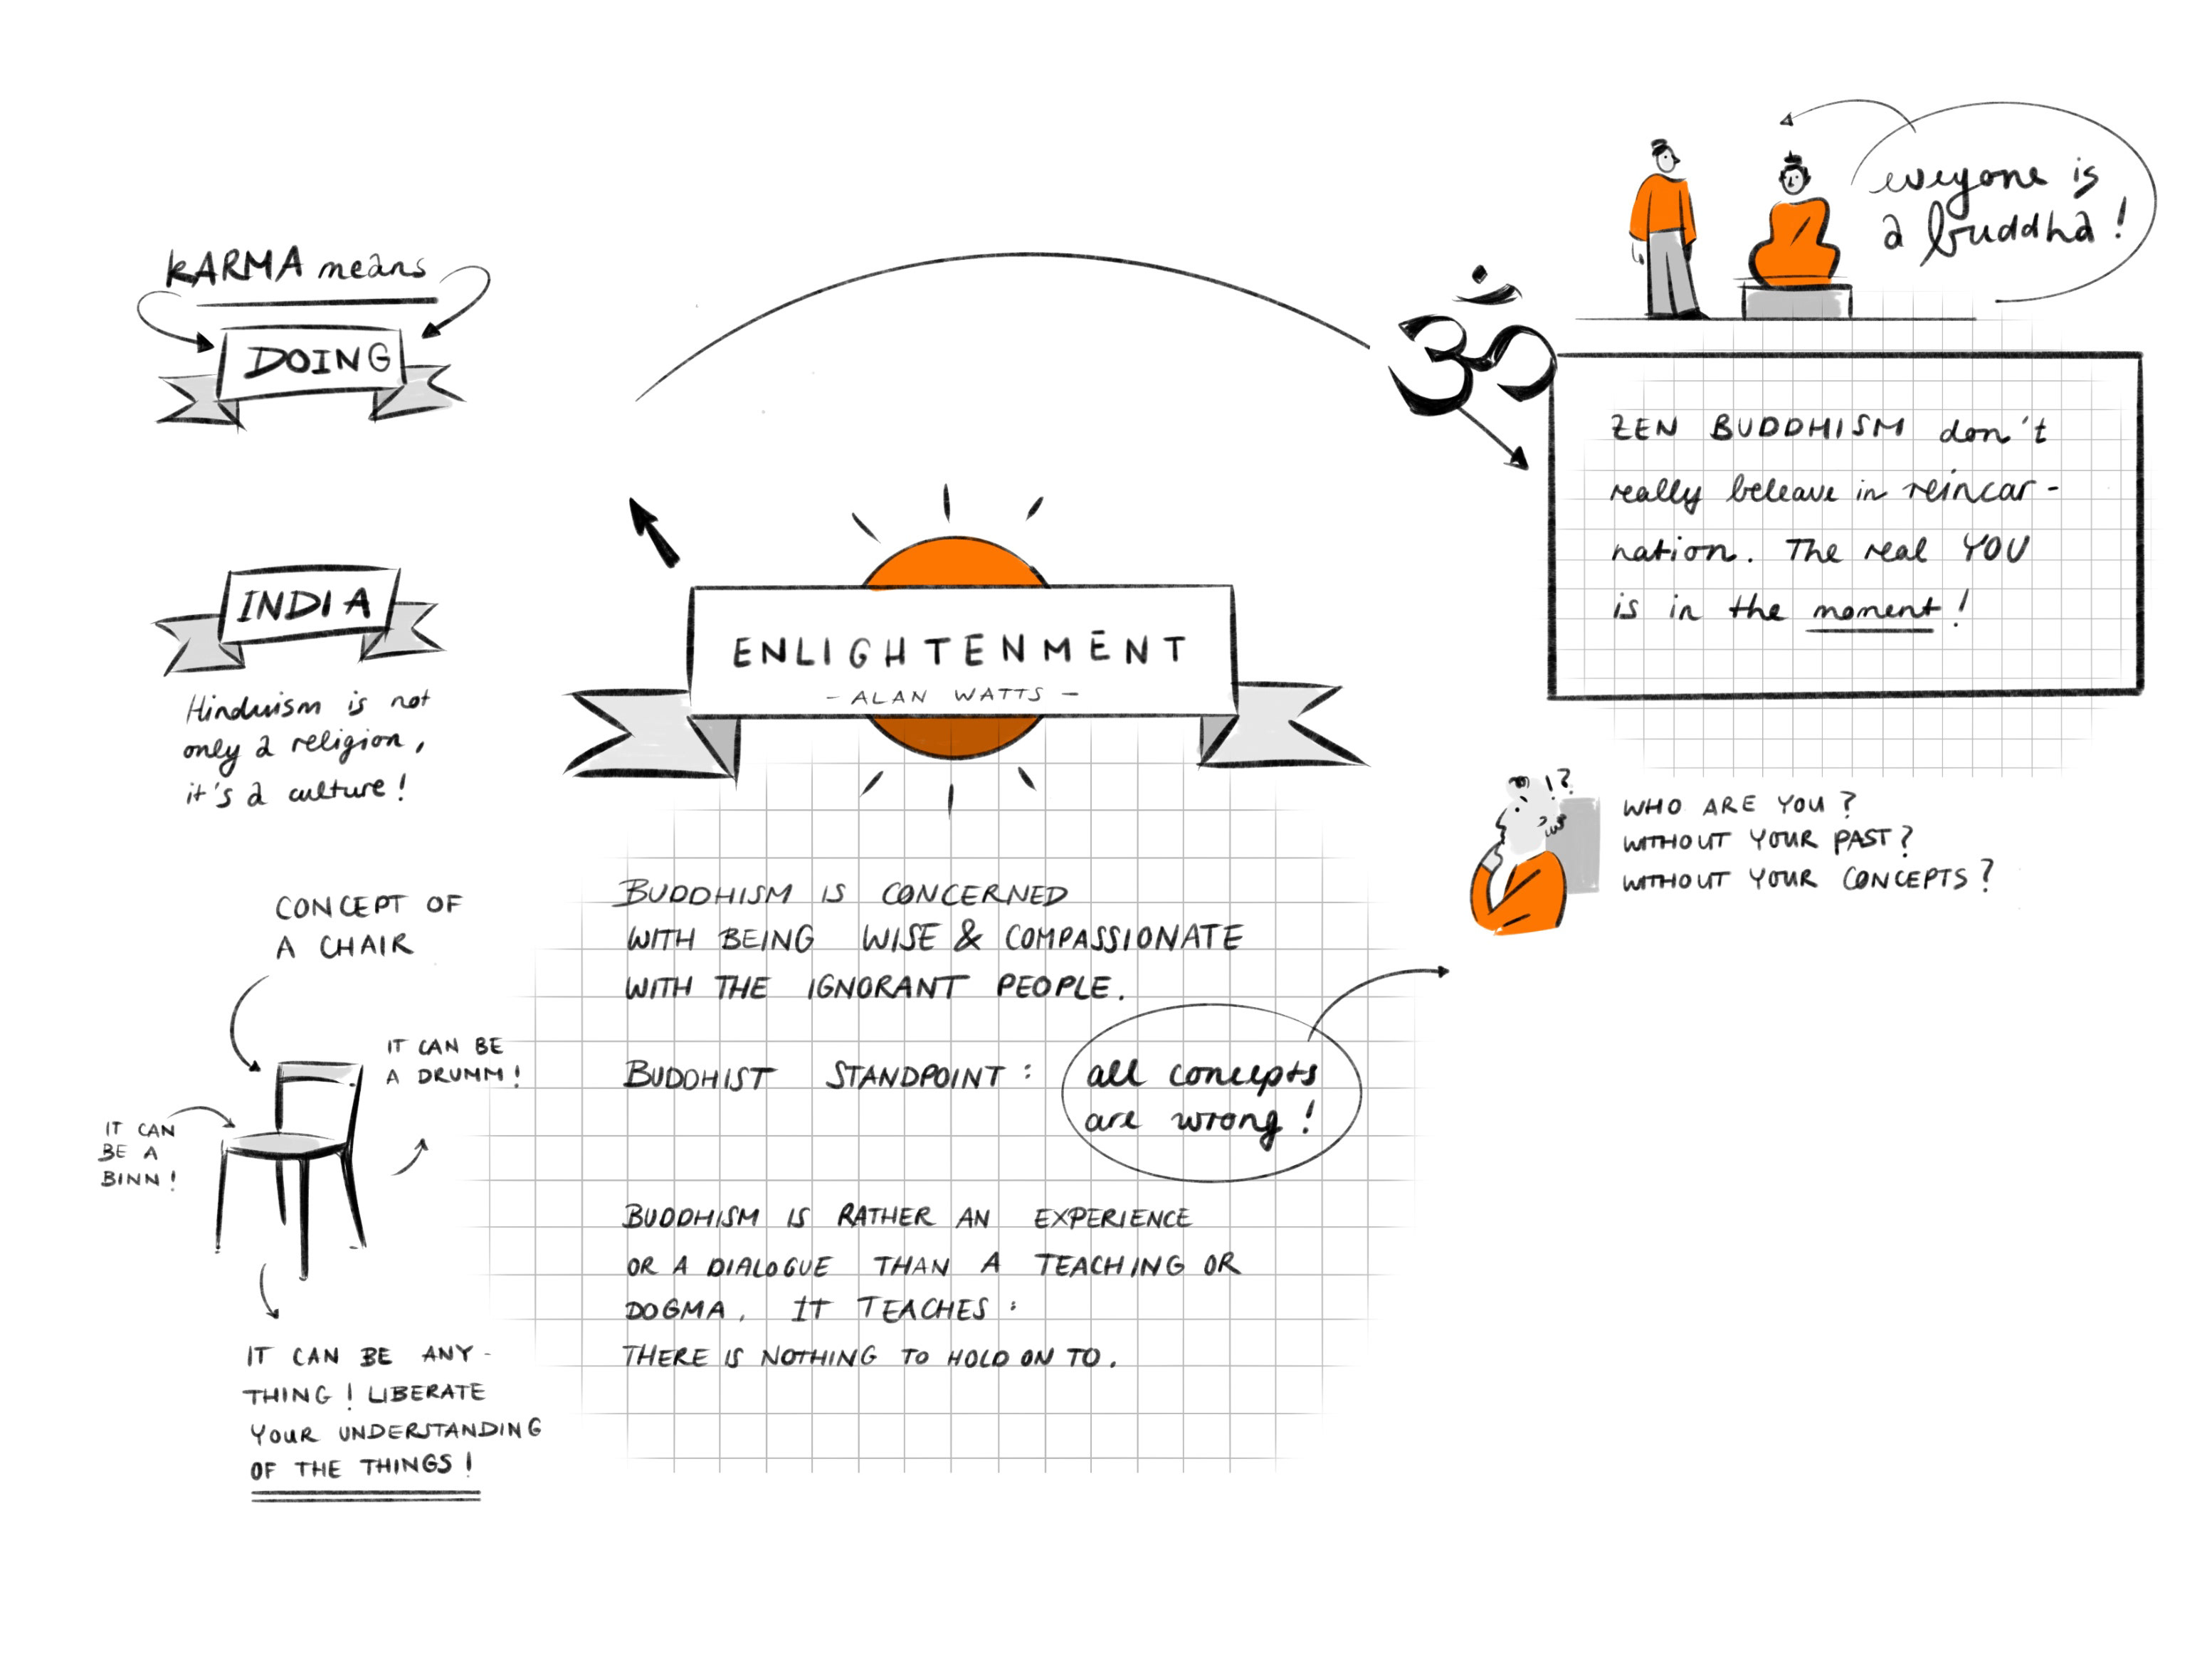 KARMA means
DOING
INDIA
Hinduism is not
only a religion,
it's a culture!
CONCEPT OF
A CHAIR
IT CAN BE
A DRUMM!
IT CAN
BE A
BINN!
IT CAN BE ANY-
THING! LIBERATE
YOUR UNDERSTANDING
OF THE THINGS!
ENLIGHTENMENT
- ALAN WATTS -
BUDDHISM IS CONCERNED
WITH BEING WISE & COMPASSIONATE
WITH THE IGNORANT PEOPLE.
BUDDHIST STANDPOINT:
all concepts
are wrong!
BUDDHISM IS RATHER AN EXPERIENCE
OR A DIALOGUE THAN A TEACHING OR
DOGMA. IT TEACHES:
THERE IS NOTHING TO HOLD ON TO.
ॐ
everyone is
a buddha!
ZEN BUDDHISM don't
really beleave in reincar-
nation. The real YOU
is in the moment!
!?
WHO ARE YOU?
WITHOUT YOUR PAST?
WITHOUT YOUR CONCEPTS?